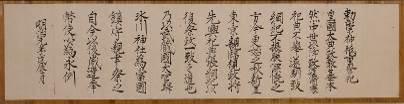 勅崇神祇重祭祀
皇國大典政教基本
然中世以降政道漸衰
祀典不擧遂馴致
綱紀不振朕深慨之
方今更始之秋新置
東京親臨視政将
先興祀典張綱紀以
復祭政一致之道也
乃以武蔵國大宮驛
氷川神社為當國
鎮守親幸祭之
自今以後歳遣奉
幣使以為永例
明治元年戊辰十月